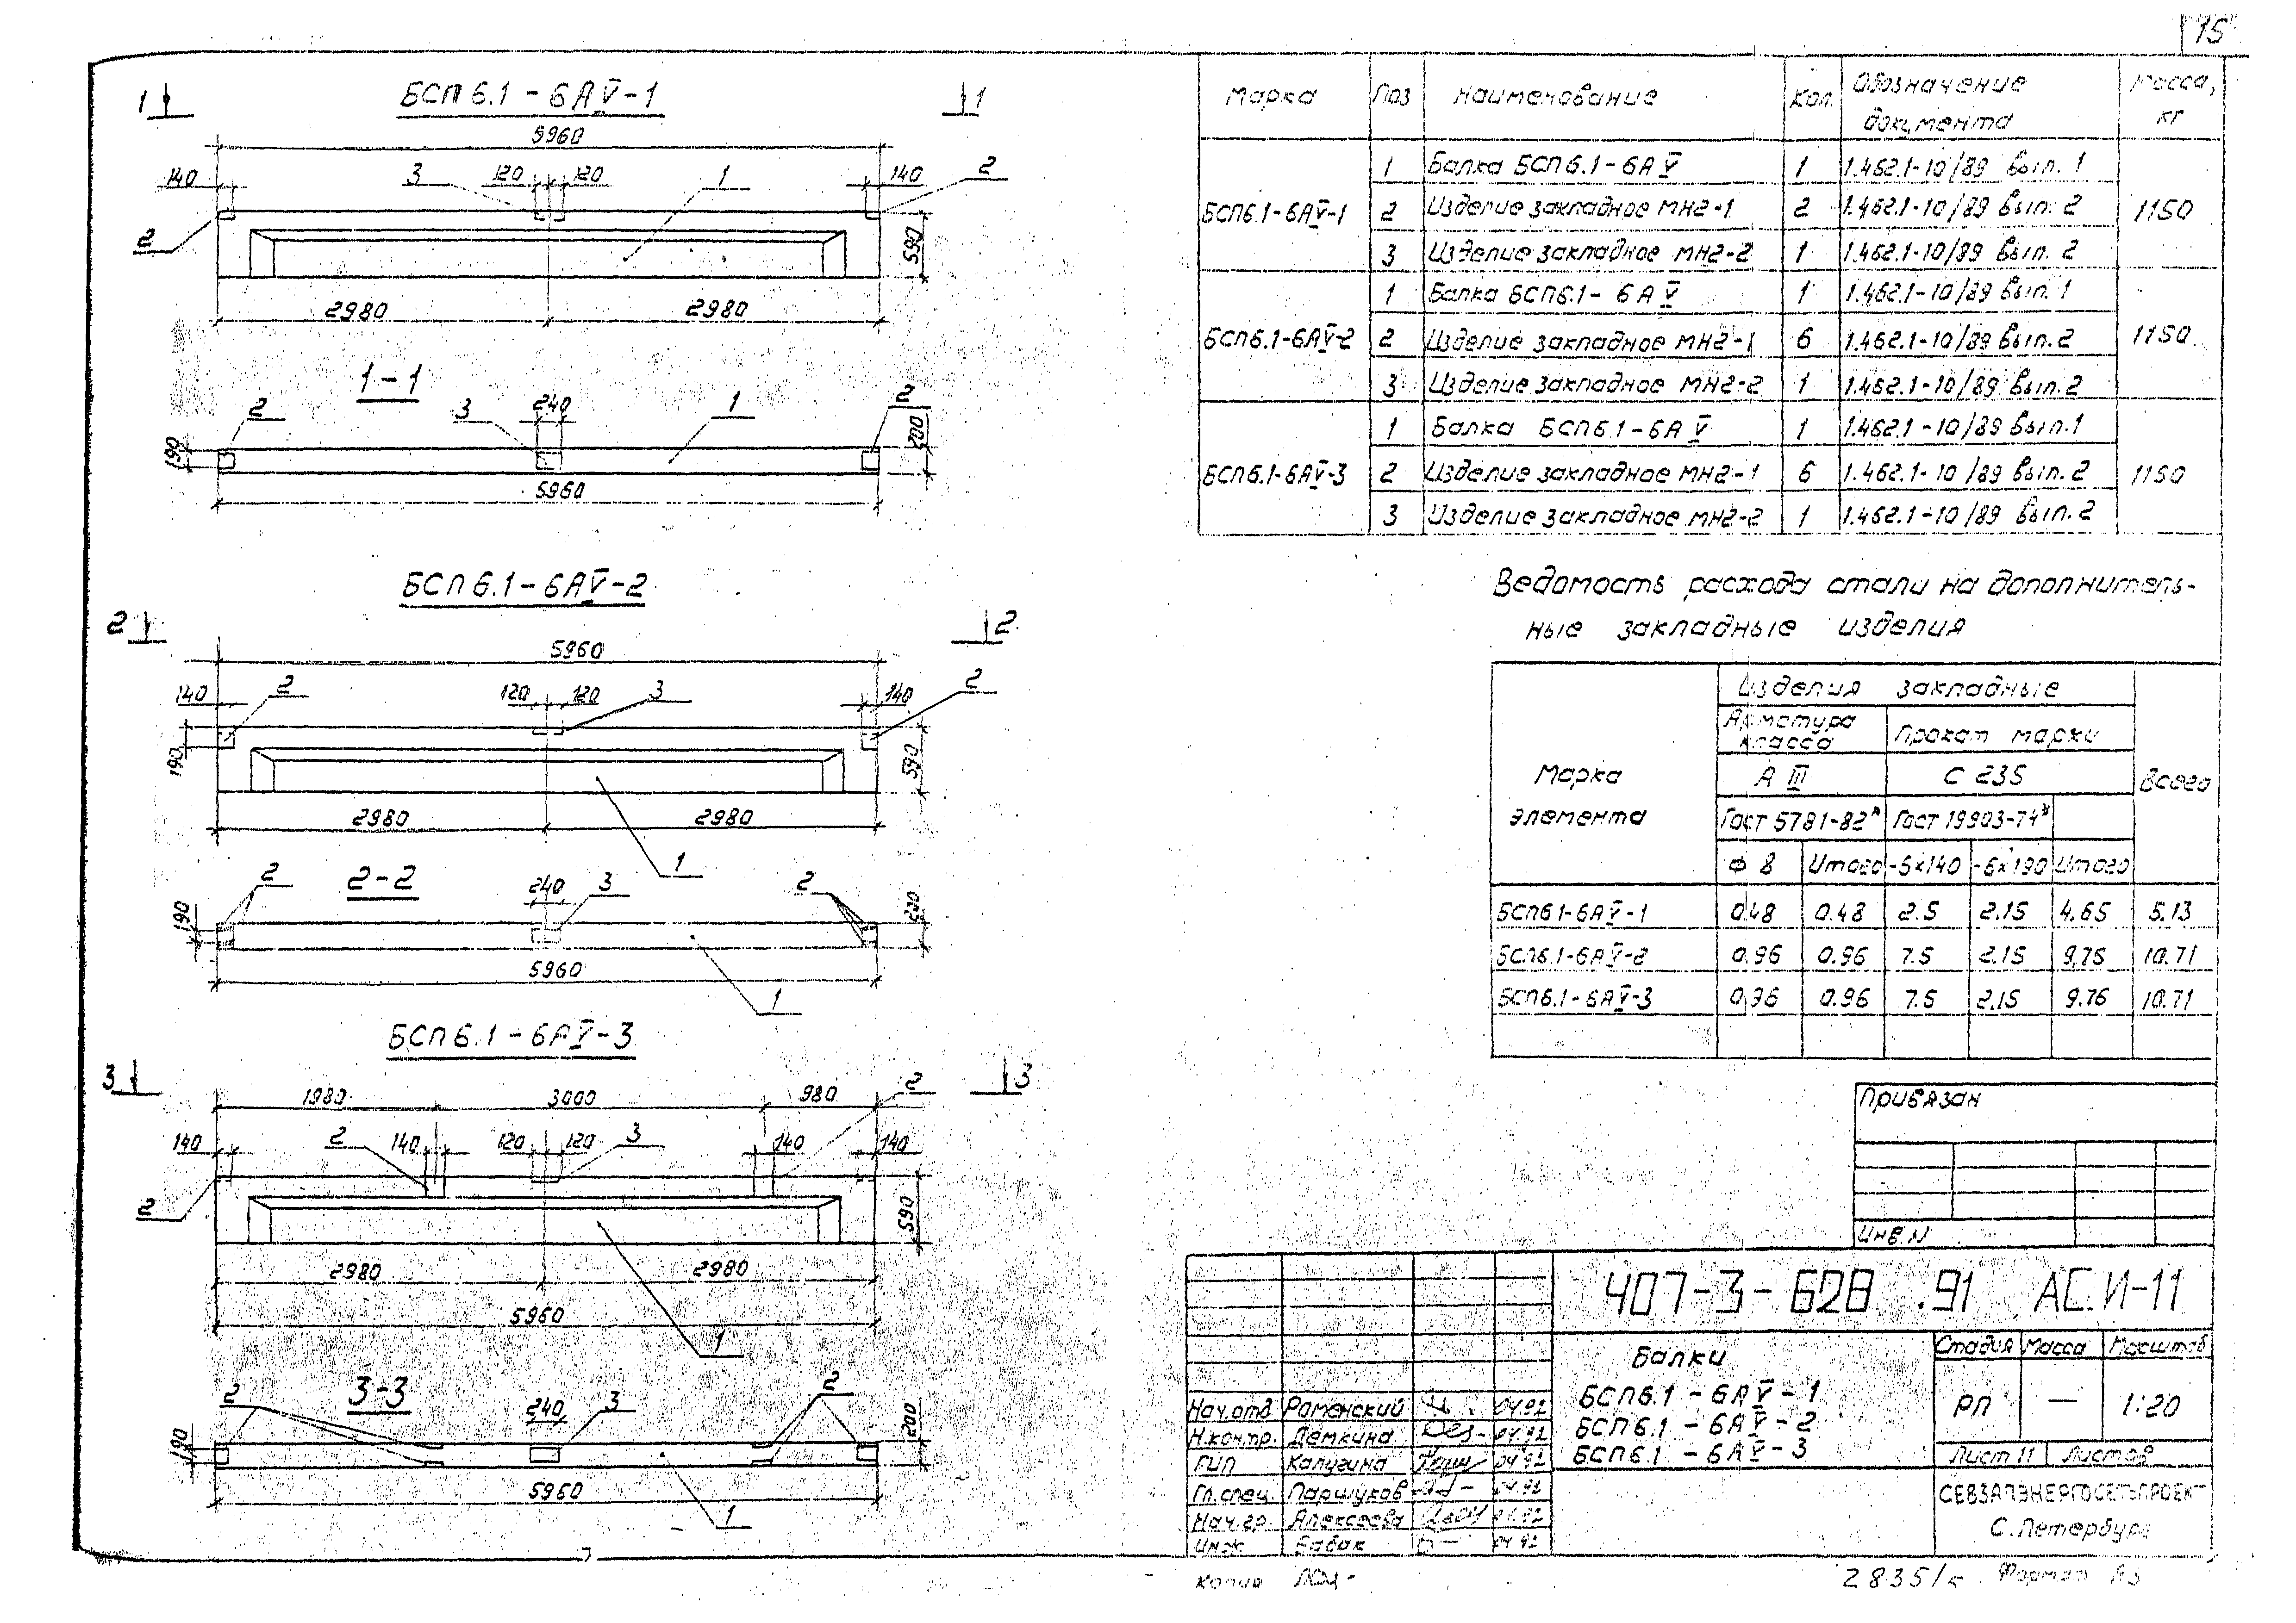 15
БСП 6.1 - 6АV-1
1 1
5960
140 3 120 120 1 140 2
2 590
2980 2980
1-1
2 3 240 1 2
190 200
5960
БСП 6.1 - 6АV-2
2 2
5960
140 2 120 120 3 140 2
190 590
2980 2980
1
2-2
2 240 3 2
190 200
5960
1
БСП 6.1 - 6АV-3
3 3
1980 3000 980 2
140 2 140 120 120 3 140 140
2 590
2980 2980
5960
1
3-3
2 240 3 2
190 200
5960
1
Марка Поз Наименование Кол. Обозначение документа Масса, кг
БСП6.1-6АV-1 1150
1 Балка БСП6.1-6АV 1 1.462.1-10/89 вып. 1
2 Изделие закладное МН2-1 2 1.462.1-10/89 вып. 2
3 Изделие закладное МН2-2 1 1.462.1-10/89 вып. 2
БСП6.1-6АV-2 1150
1 Балка БСП6.1-6АV 1 1.462.1-10/89 вып. 1
2 Изделие закладное МН2-1 6 1.462.1-10/89 вып. 2
3 Изделие закладное МН2-2 1 1.462.1-10/89 вып. 2
БСП6.1-6АV-3 1150
1 Балка БСП6.1-6АV 1 1.462.1-10/89 вып. 1
2 Изделие закладное МН2-1 6 1.462.1-10/89 вып. 2
3 Изделие закладное МН2-2 1 1.462.1-10/89 вып. 2
Ведомость расхода стали на дополнитель-
ные закладные изделия
Марка элемента Изделия закладные Всего
Арматура класса Прокат марки
А III С 235
Гост 5781-82* Гост 19903-74*
Ф 8 Итого -6×140 -6×190 Итого
БСП6.1-6АV-1 0.48 0.48 2.5 2.15 4.65 5.13
БСП6.1-6АV-2 0.96 0.96 7.5 2.15 9.75 10.71
БСП6.1-6АV-3 0.96 0.96 7.5 2.15 9.76 10.71
Привязан
Инв.N
407-3-628.91 АС.И-11
Балки
БСП6.1 - 6АV - 1
БСП6.1 - 6АV - 2
БСП6.1 - 6АV - 3
Стадия Масса Масштаб
РП — 1:20
Лист 11 Листов
СЕВЗАПЭНЕРГОСЕТЬПРОЕКТ
С.Петербург
Нач.отд Раменский 04.92
Н.контр. Демкина 04.92
ГИП Калугина 04.92
Гл.спец. Паршуков 04.92
Нач.гр. Алексеева 04.92
Инж. Бабак 04.92
Копия
2835/5 Формат А3